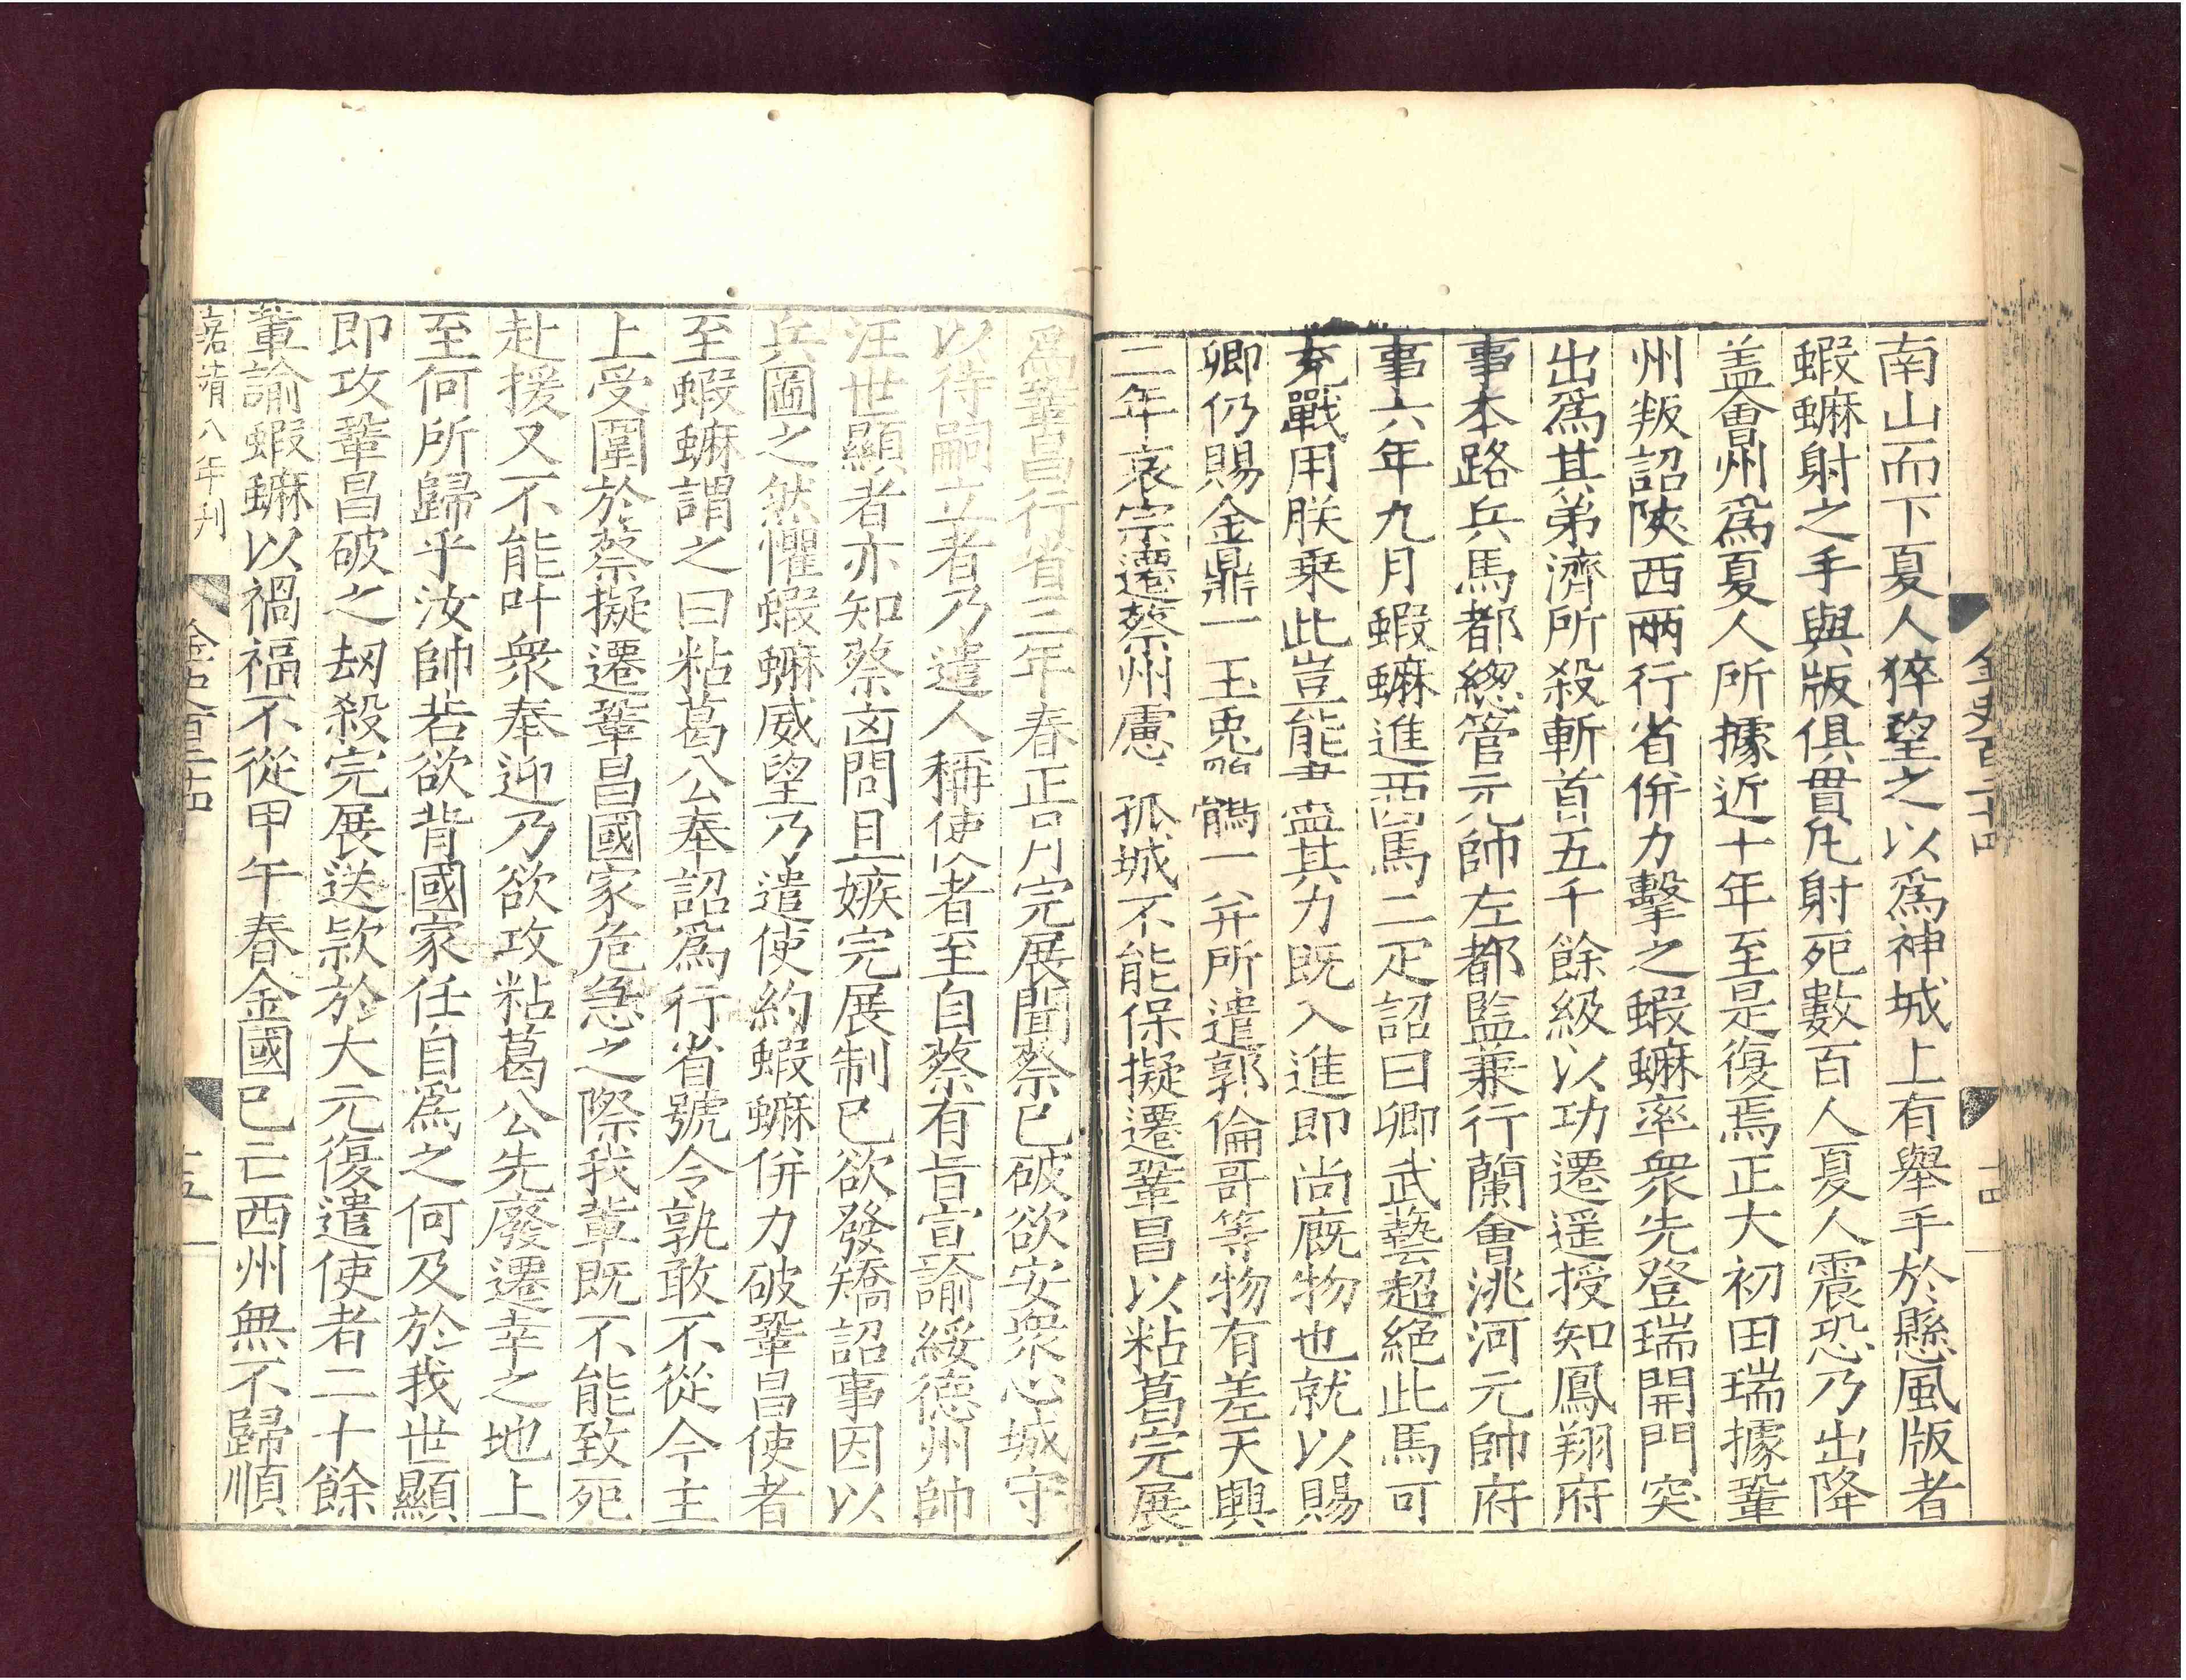 南山而下夏人猝望之以爲神城上有舉手於懸風版者
蝦䗫射之手與版俱貫凡射死數百人夏人震恐乃出降
盖會州爲夏人所據近十年至是復焉正大初田瑞據鞏
州叛詔陝西兩行省併力擊之蝦䗫率衆先登瑞開門突
出爲其弟濟所殺斬首五千餘級以功遷遥授知鳳翔府
事本路兵馬都緫管元帥左都監兼行蘭會洮河元帥府
事六年九月蝦䗫進西馬二疋詔曰卿武藝超絶此馬可
充戰用朕乗此豈能盡其力既入進即尚廐物也就以賜
卿仍賜金鼎一玉兎鶻一并所遣郭倫哥等物有差天興
二年哀宗遷蔡州慮孤城不能保擬遷鞏昌以粘葛完展
爲鞏昌行省三年春正月完展聞蔡已破欲安衆心城守
以待嗣立者乃遣人稱使者至自蔡有旨宣諭綏德州帥
汪世顯者亦知蔡凶問且嫉完展制已欲發矯詔事因以
兵圖之然懼蝦䗫威望乃遣使約蝦䗫併力破鞏昌使者
至蝦䗫謂之曰粘葛公奉詔爲行省號令孰敢不從今主
上受圍於蔡擬遷鞏昌國家危急之際我輩既不能致死
赴援又不能叶衆奉迎乃欲攻粘葛公先廢遷幸之地上
至何所歸乎汝帥若欲背國家任自爲之何及於我世顯
即攻鞏昌破之刼殺完展送欵於大元復遣使者二十餘
輩諭蝦䗫以禍福不從甲午春金國已亡西州無不歸順
嘉靖八年刊
金史百二十四
十四
金史百二十四
十五